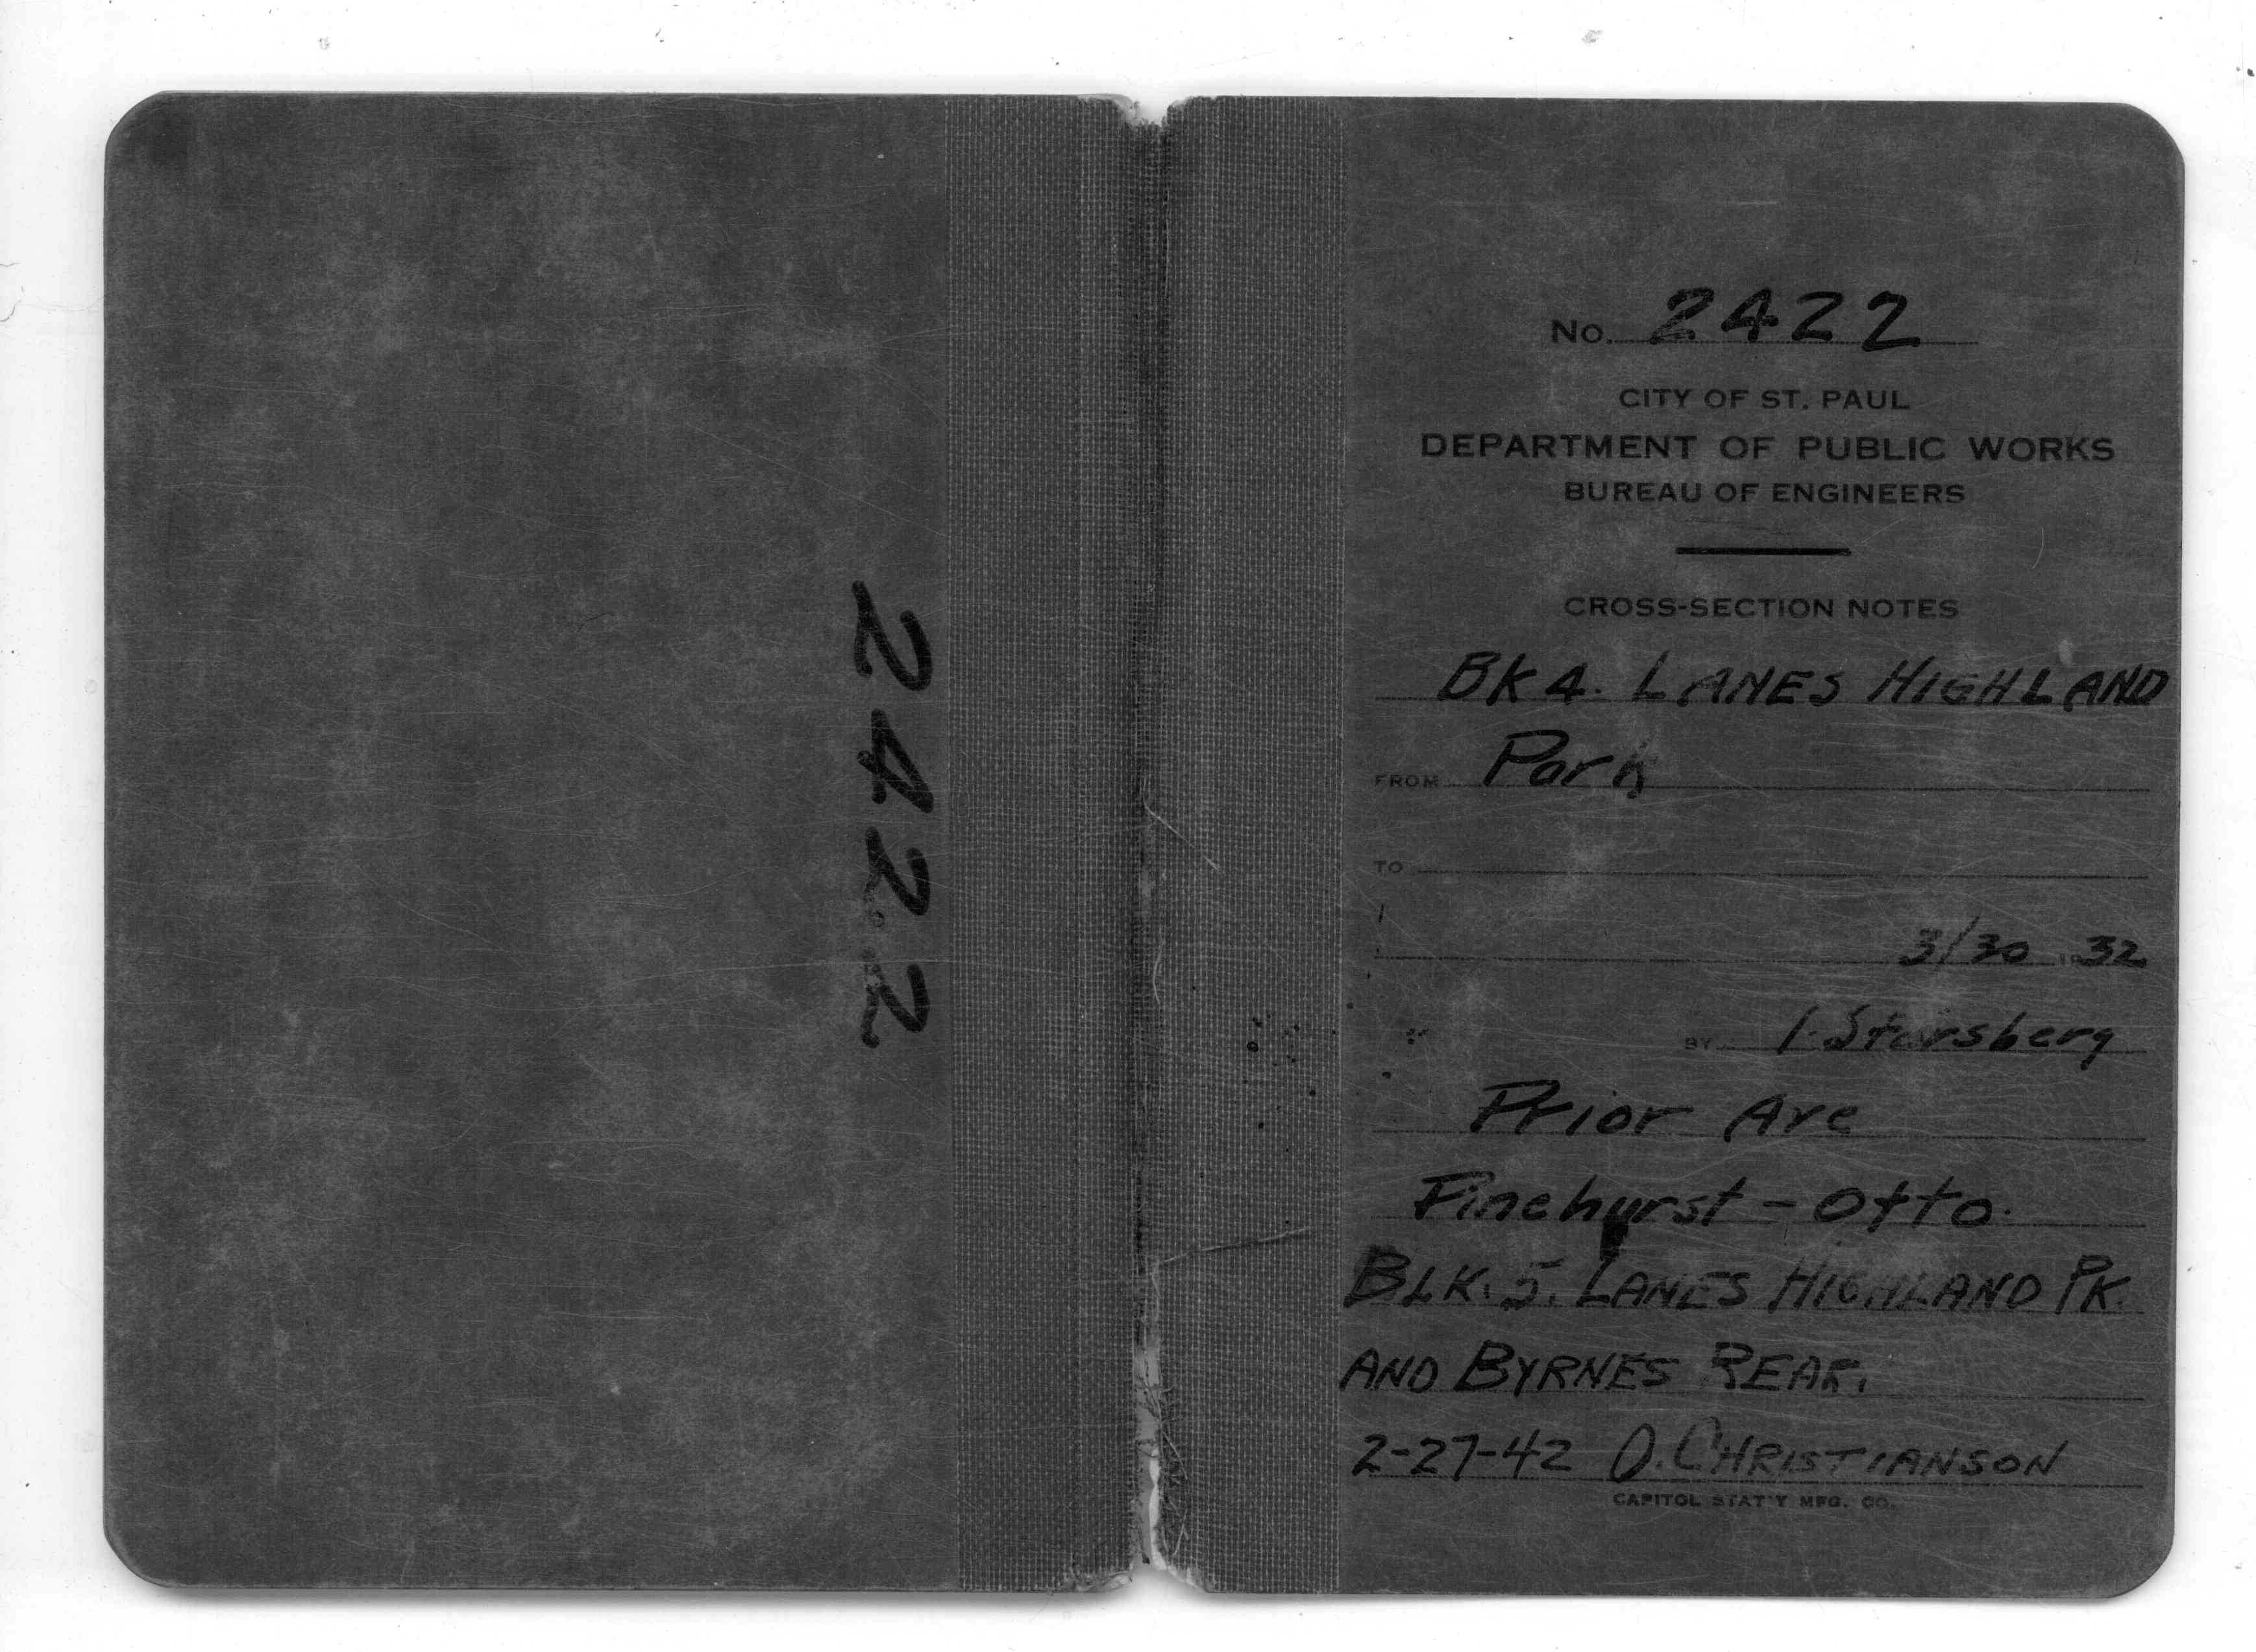 2422
No. 2422
CITY OF ST. PAUL
DEPARTMENT OF PUBLIC WORKS
BUREAU OF ENGINEERS
CROSS-SECTION NOTES
BK 4. LANES HIGHLAND
FROM Park
TO
3/30 1932
BY I. Storsberg
Prior Ave
Pinehurst - Otto.
BLK. 5. LANES HIGHLAND PK.
AND BYRNES REAR.
2-27-42 O. CHRISTIANSON
CAPITOL STAT'Y MFG. CO.